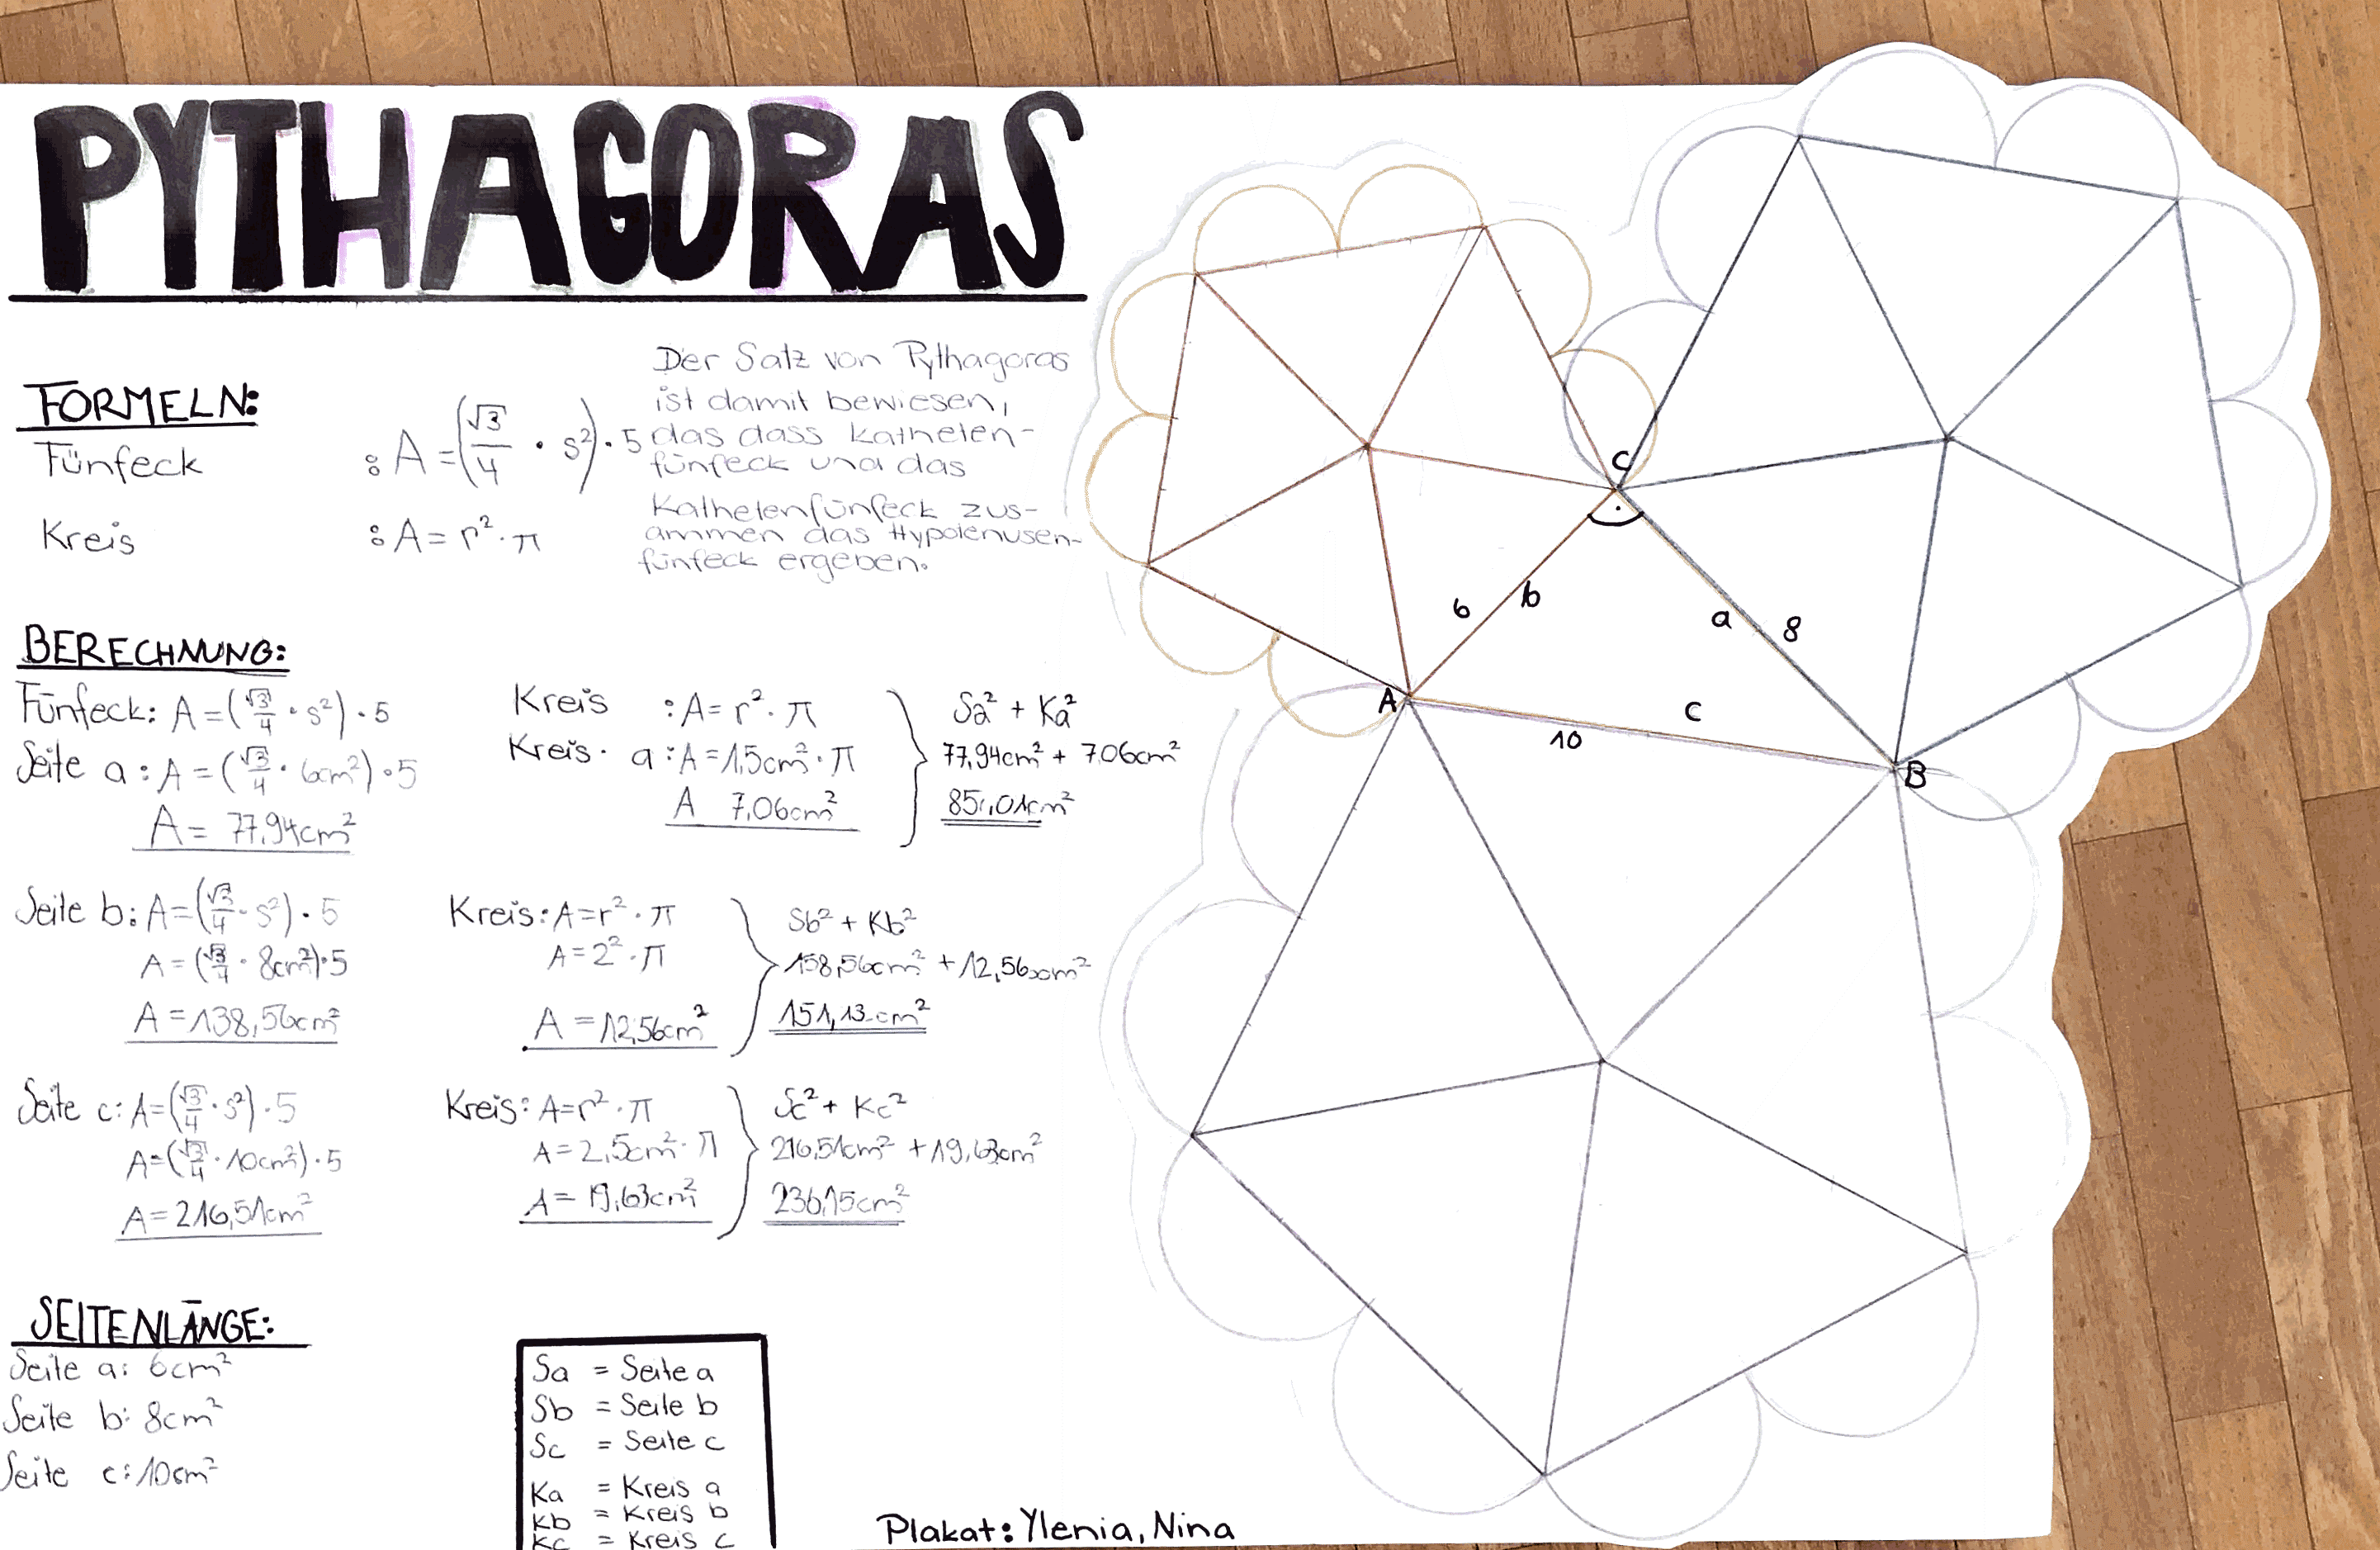 PYTHAGORAS
FORMELN:
Fünfeck : A = (√3/4 · s²) · 5
Kreis : A = r² · π
Der Satz von Pythagoras
ist damit bewiesen,
das dass Katheten-
fünfeck und das
Kathetenfünfeck zus-
ammen das Hypotenusen-
fünfeck ergeben.
BERECHNUNG:
Fünfeck: A = (√3/4 · s²) · 5
Seite a : A = (√3/4 · 6cm²) · 5
A = 77,94cm²
Kreis : A = r² · π
Kreis · a : A = 1,5cm² · π
A 7,06cm²
Sa² + Ka²
77,94cm² + 7,06cm²
85,01cm²
Seite b: A = (√3/4 · s²) · 5
A = (√3/4 · 8cm²) · 5
A = 138,56cm²
Kreis: A = r² · π
A = 2² · π
A = 12,56cm²
Sb² + Kb²
158,56cm² + 12,56cm²
151,13 cm²
Seite c: A = (√3/4 · s²) · 5
A = (√3/4 · 10cm²) · 5
A = 216,51cm²
Kreis: A = r² · π
A = 2,5cm² · π
A = 19,63cm²
Sc² + Kc²
216,51cm² + 19,63cm²
236,15cm²
SEITENLÄNGE:
Seite a: 6cm²
Seite b: 8cm²
Seite c: 10cm²
Sa = Seite a
Sb = Seite b
Sc = Seite c
Ka = Kreis a
Kb = Kreis b
Kc = Kreis c
Plakat: Ylenia, Nina
C
6 b
a 8
A
c
10
B